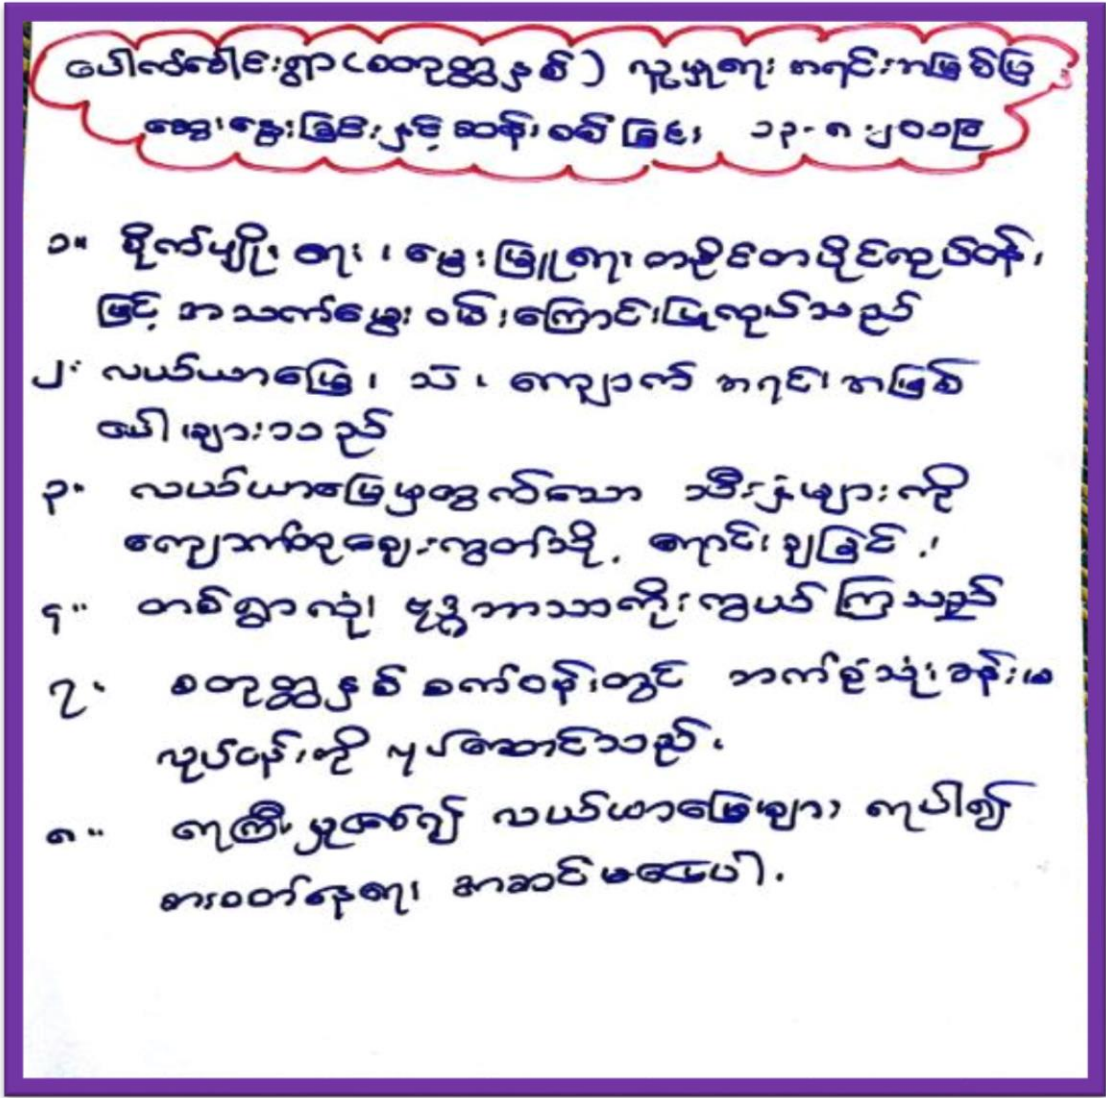 ပေါက်ခေါင်းရွာ (စတုတ္တနှစ်) လူမှုရေး အရင်းအမြစ်ပြ
ဆွေးနွေးခြင်းနှင့် ဆန်းစစ်ခြင်း ၁၃-၈-၂၀၁၆
၁။ စိုက်မျိုးရေး၊ မွေးမြူရေး တစ်ပိုင်တပိုင်လုပ်ငန်း
ဖြင့် အသက်မွေးဝမ်းကြောင်းပြုလုပ်သည်
၂။ လယ်ယာမြေ၊ သဲ၊ ကျောက် အရင်းအမြစ်
ပေါများသည်
၃။ လယ်ယာမြေမှထွက်သော သီးနှံများကို
ကျောက်ထုစျေးကွက်သို့ ရောင်းချခြင်း၊
၄။ တစ်ရွာလုံး ဗုဒ္ဓဘာသာကိုးကွယ်ကြသည်
၇။ စတုတ္တနှစ် စက်ဝန်းတွင် ဘက်စုံသုံးခန်းမ
လုပ်ငန်းကို လုပ်ဆောင်သည်။
၈။ ရေကြီးမှုဖြစ်၍ လယ်ယာမြေများ ရေပါ၍
စားဝတ်နေရေး အဆင်မပြေပါ။